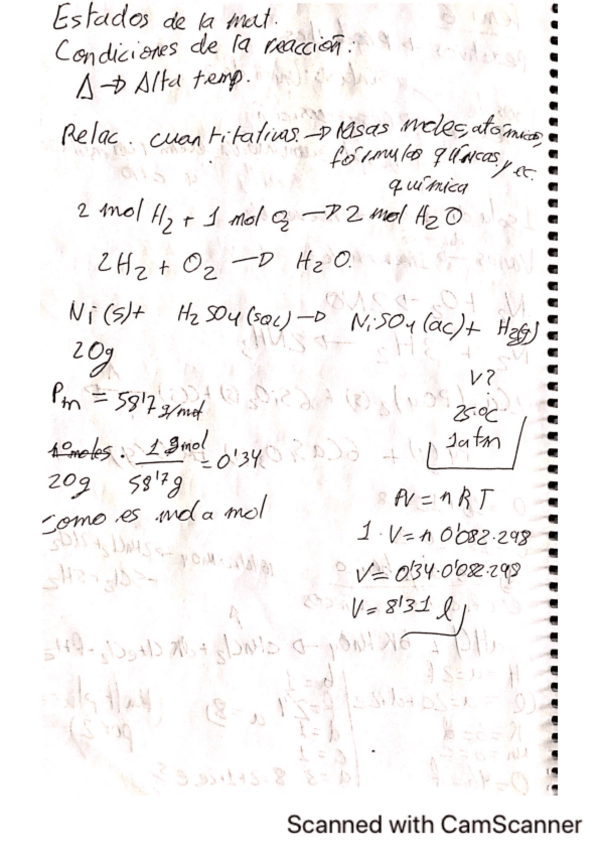 Estados de la mat.
Condiciones de la reacción:
Δ → Alta temp.
Relac. cuantitativas → Masas moles, atómicas,
fórmulas químicas y ec.
química
2 mol H2 + 1 mol O2 → 2 mol H2O
2H2 + O2 → H2O.
Ni (s) + H2SO4 (sac) → NiSO4 (ac) + H2(g)
20g
V?
25ºC
1 atm
Pm = 58'7 g/mol
nº moles. 1 mol = 0'34
20g 58'7g
Como es mol a mol
PV = n R T
1 · V = n 0'082 · 298
V = 0'34 · 0'082 · 298
V = 8'31 l
Scanned with CamScanner